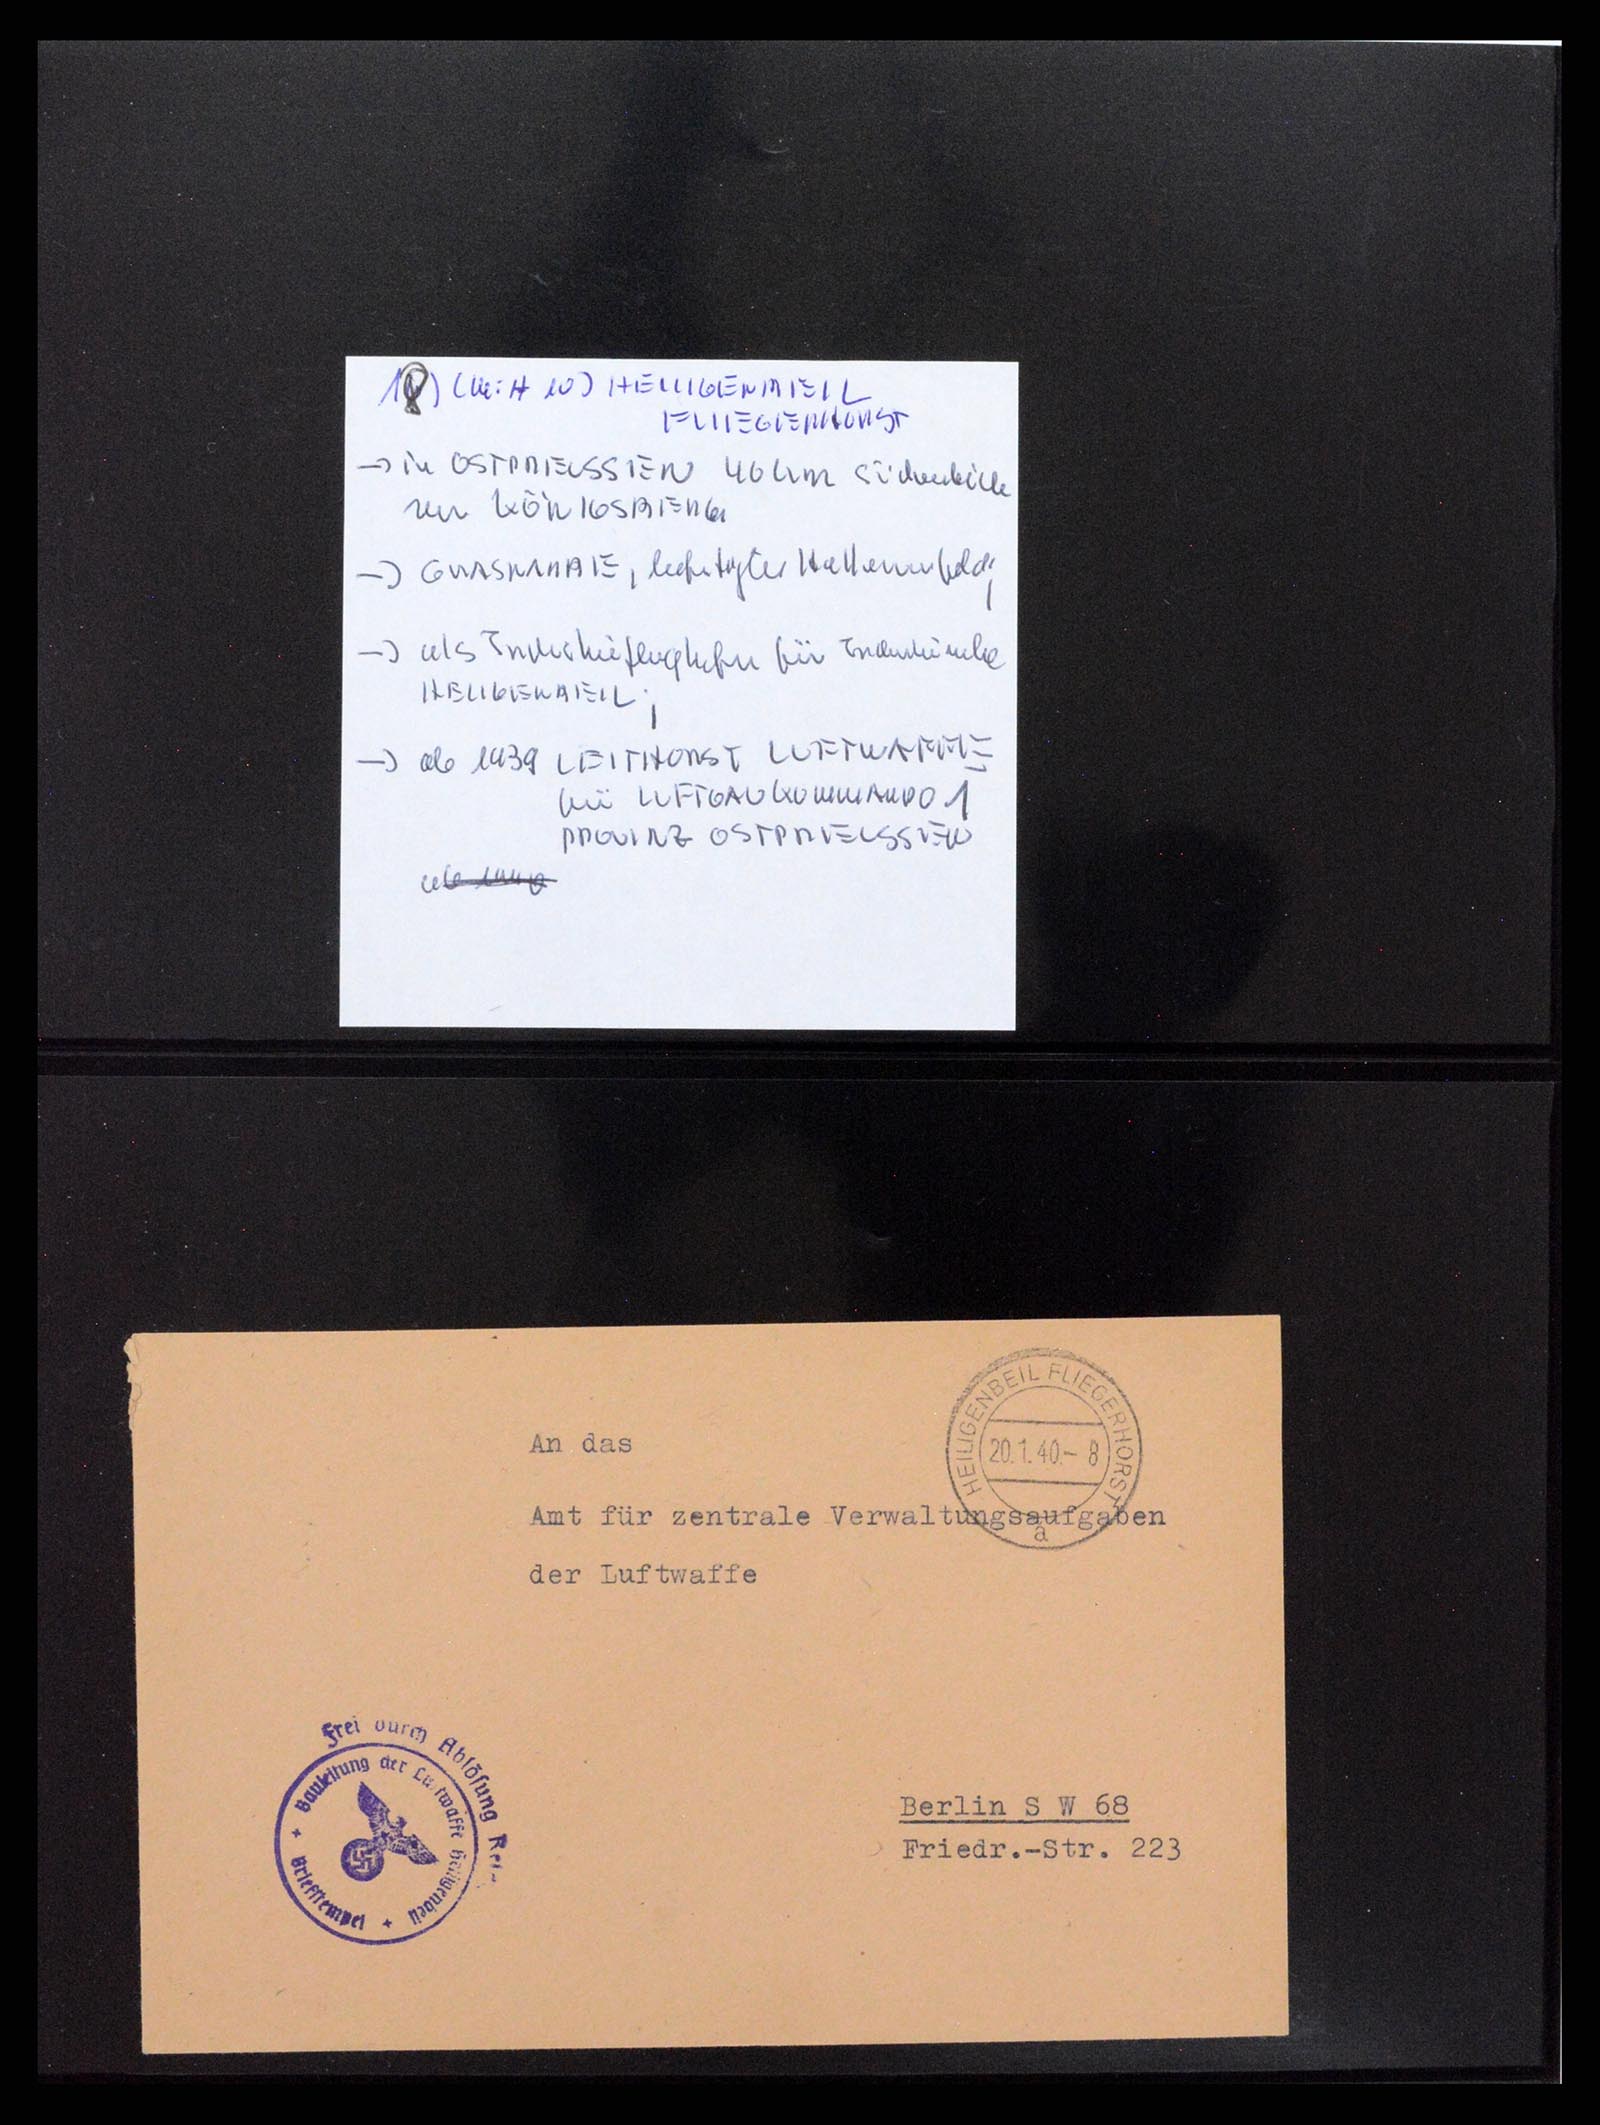 HEILIGENBEIL
FLIEGERHORST
→ in OSTPREUSSEN 40 km
KÖNIGSBERG
→ GRASNARBE, befestigtes Hallenvorfeld;
→ als Industrieflughafen für
HEILIGENBEIL;
→ ab 1939 LEITHORST LUFTWAFFE
für LUFTGAUKOMMANDO 1
PROVINZ OSTPREUSSEN
HEILIGENBEIL FLIEGERHORST
20.1.40.- 8
a
An das
Amt für zentrale Verwaltungsaufgaben
der Luftwaffe
Frei durch Ablösung
Bauleitung der Luftwaffe Heiligenbeil
Briefstempel
Berlin S W 68
Friedr.-Str. 223